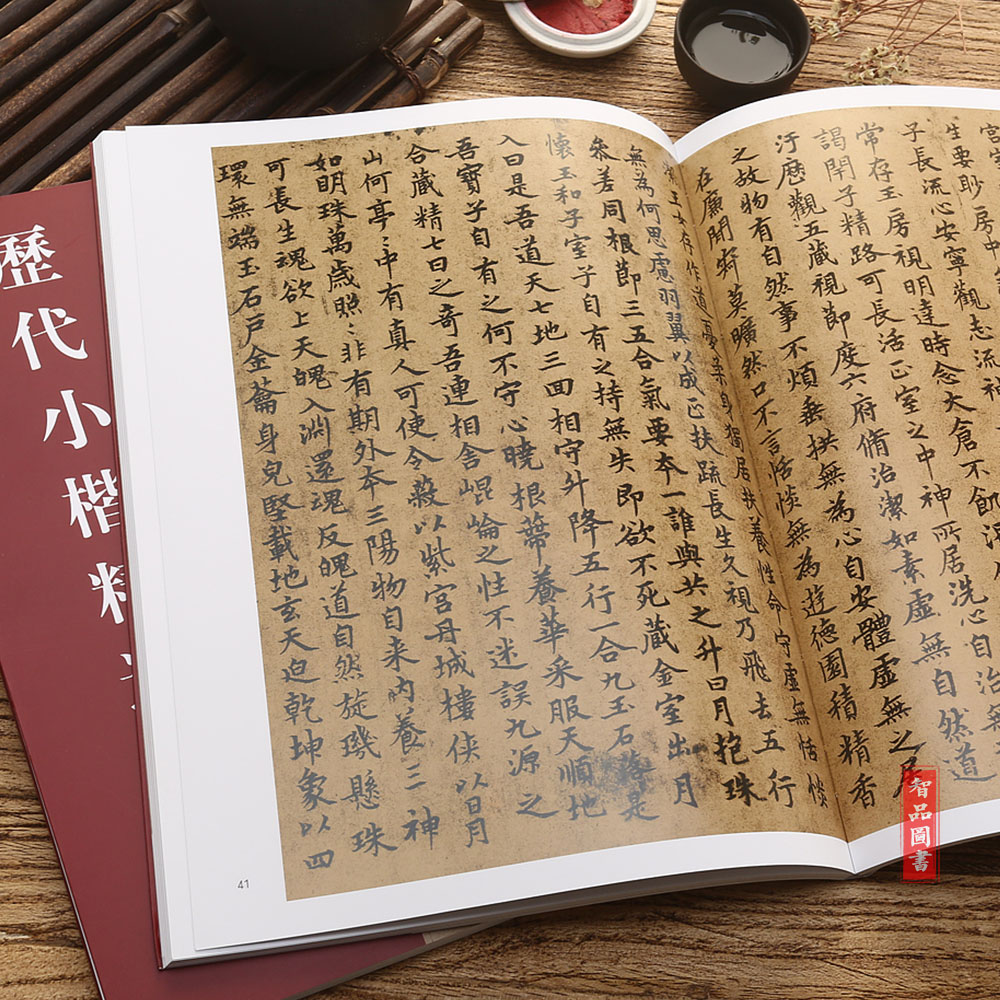 生要眇房中
子長流心安寧觀志流神
常存玉房視明達時念大倉不飢渴
謁閉子精路可長活正室之中神所居洗心自治無
汙歷觀五藏視節度六府脩治潔如素虛無自然道
之故物有自然事不煩垂拱無為心自安體虛無之居
在廉閒寂莫曠然口不言恬惔無為遊德園積精香
玉女存作道憂柔身獨居扶養性命守虛無恬惔
無為何思慮羽翼以成正扶疏長生久視乃飛去五行
參差同根節三五合氣要本一誰與共之升日月抱珠
懷玉和子室子自有之持無失即欲不死藏金室出月
入日是吾道天七地三回相守升降五行一合九玉石落是
吾寶子自有之何不守心曉根蒂養華采服天順地
合藏精七日之奇吾連相舍崐崘之性不迷誤九源之
山何亭〻中有真人可使令蔽以紫宮丹城樓俠以日月
如明珠萬歲照〻非有期外本三陽物自来內養三神
可長生魂欲上天魄入淵還魂反魄道自然旋璣懸珠
環無端玉石戶金籥身完堅載地玄天迫乾坤象以四
41
歷代小楷精
智品圖書